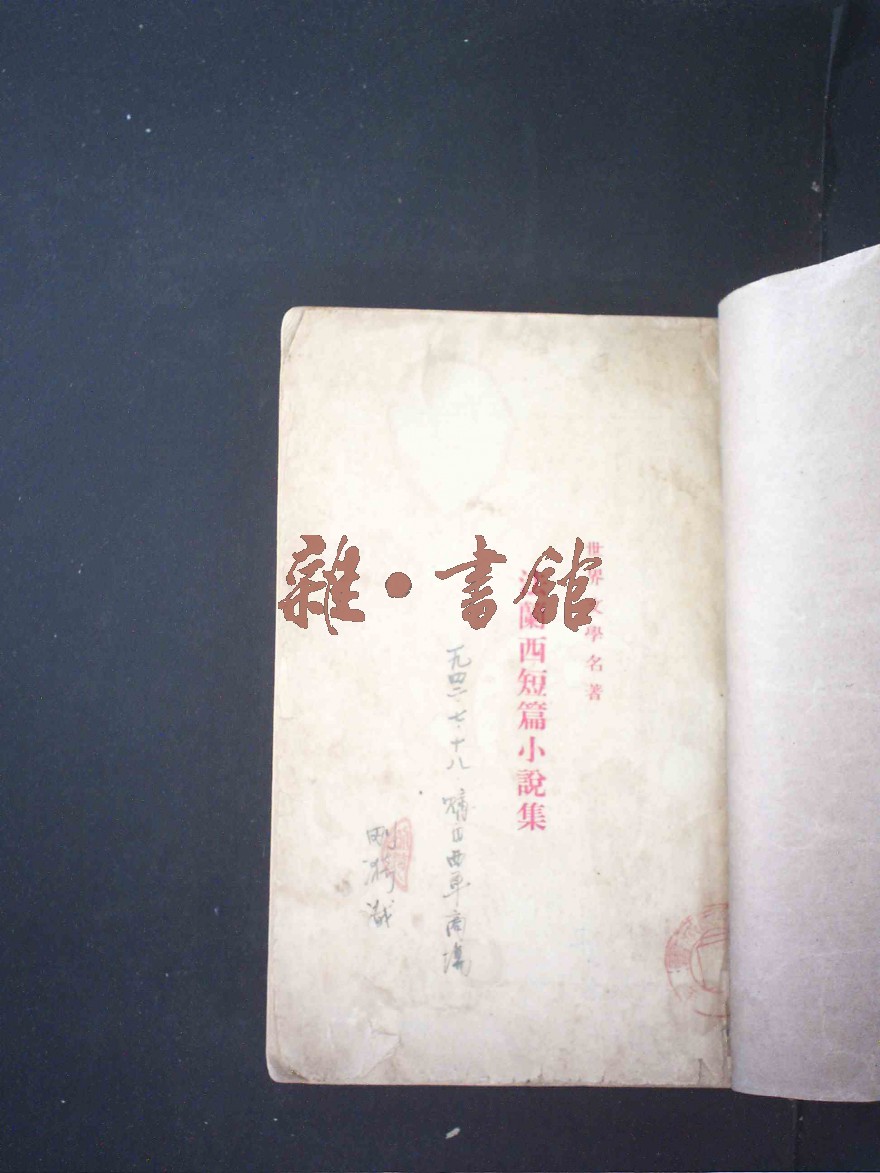 雜·書館
世界文學名著
法蘭西短篇小說集
一九四二、七、十八 購自西單商場